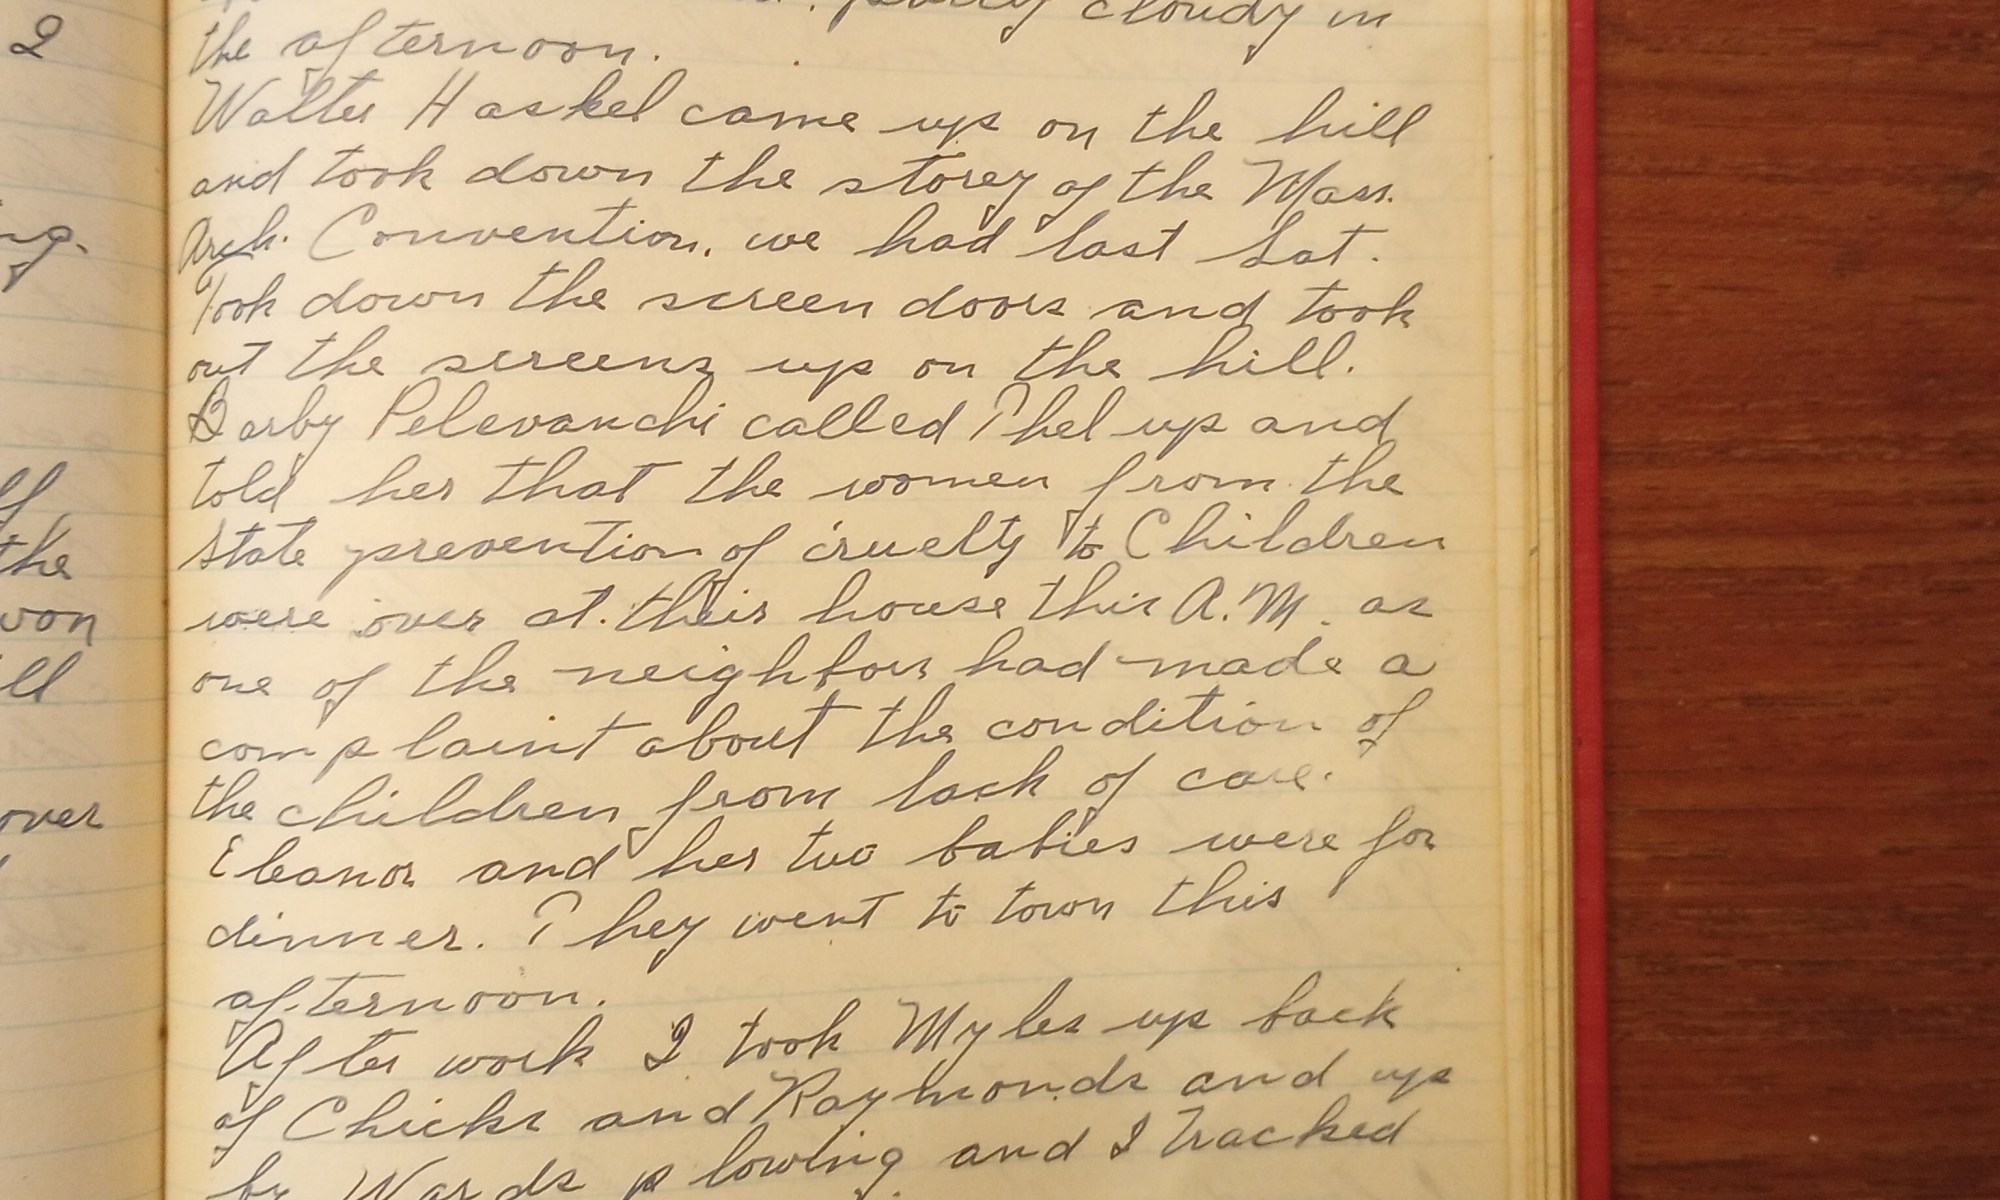 2
ng.
the
won
ll
over
partly cloudy in
the afternoon.
Walter Haskel came up on the hill
and took down the storey of the Mass.
Arch. Convention. we had last Sat.
Took down the screen doors and took
out the screens up on the hill.
Barby Pelevanchi called Thel up and
told her that the women from the
State prevention of cruelty to Children
were over at their house this A.M. as
one of the neighbors had made a
complaint about the condition of
the children from lack of care.
Eleanor and her two babies were for
dinner. They went to town this
afternoon.
After work I took Myles up back
of Chicks and Raymonds and up
by Wards plowing and I tracked